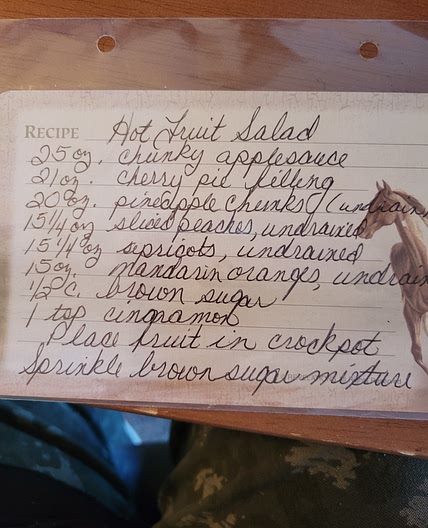 RECIPE Hot Fruit Salad
25 oz. chunky applesauce
21 oz. cherry pie filling
20 oz. pineapple chunks (undrain
15 1/4 oz sliced peaches, undrained
15 1/4 oz apricots, undrained
15 oz. mandarin oranges, undrain
1/2 c. brown sugar
1 tsp cinnamon
Place fruit in crockpot
Sprinkle brown sugar mixture